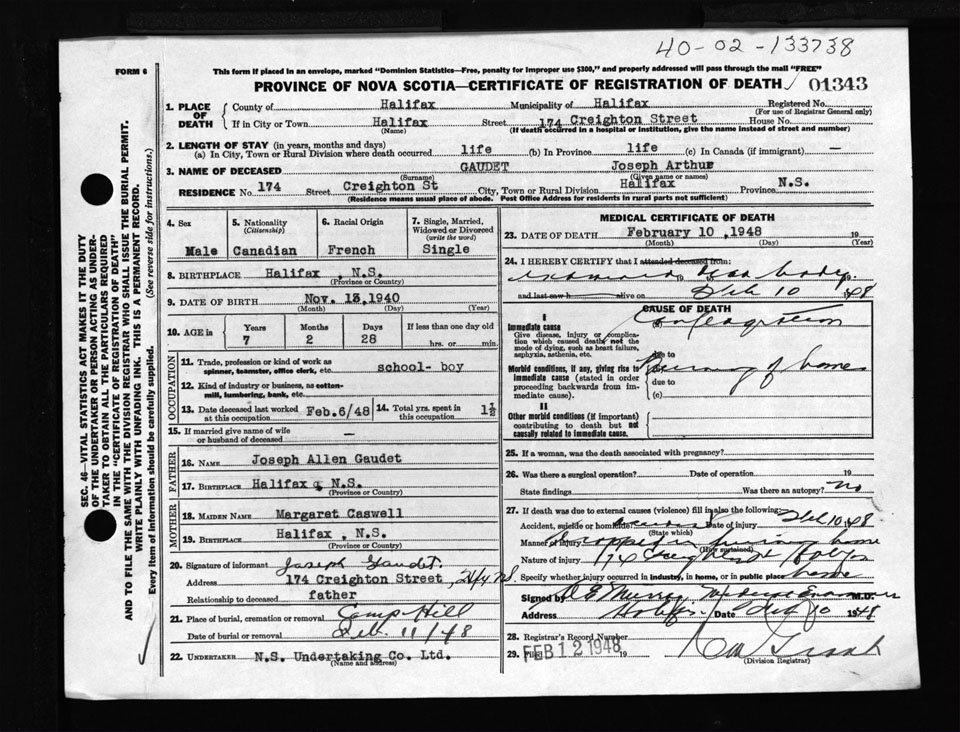 40-02-133738
FORM 6
This form if placed in an envelope, marked "Dominion Statistics—Free, penalty for improper use $300," and properly addressed will pass through the mail "FREE"
PROVINCE OF NOVA SCOTIA—CERTIFICATE OF REGISTRATION OF DEATH 01343
1. PLACE OF DEATH
County of Halifax Municipality of Halifax Registered No.
(For use of Registrar General only)
If in City or Town Halifax Street 174 Creighton Street House No.
(Name) (If death occurred in a hospital or institution, give the name instead of street and number)
2. LENGTH OF STAY (in years, months and days)
(a) In City, Town or Rural Division where death occurred life (b) In Province life (c) In Canada (if immigrant) —
3. NAME OF DECEASED GAUDET Joseph Arthur
(Surname) (Given name or names)
RESIDENCE No. 174 Street Creighton St City, Town or Rural Division Halifax Province N.S.
(Residence means usual place of abode. Post Office Address for residents in rural parts not sufficient)
4. Sex
Male
5. Nationality
(Citizenship)
Canadian
6. Racial Origin
French
7. Single, Married, Widowed or Divorced
(write the word)
Single
8. BIRTHPLACE Halifax, N.S.
(Province or Country)
9. DATE OF BIRTH Nov. 13,1940
(Month) (Day) (Year)
10. AGE in
Years Months Days If less than one day old
7 2 28 hrs. or min.
OCCUPATION
11. Trade, profession or kind of work as spinner, teamster, office clerk, etc. school- boy
12. Kind of industry or business, as cotton-mill, lumbering, bank, etc.
13. Date deceased last worked at this occupation Feb.6/48 14. Total yrs. spent in this occupation 1½
15. If married give name of wife or husband of deceased —
FATHER
16. NAME Joseph Allen Gaudet
17. BIRTHPLACE Halifax, N.S.
(Province or Country)
MOTHER
18. MAIDEN NAME Margaret Caswell
19. BIRTHPLACE Halifax, N.S.
(Province or Country)
20. Signature of informant Joseph Gaudet.
Address 174 Creighton Street, N.S.
Relationship to deceased father
21. Place of burial, cremation or removal Camp Hill
Date of burial or removal Feb. 11/48
22. UNDERTAKER N.S. Undertaking Co. Ltd.
(Name and address)
MEDICAL CERTIFICATE OF DEATH
23. DATE OF DEATH February 10 ,1948 19
(Month) (Day)
24. I HEREBY CERTIFY that I attended deceased from:
examined dead body
19
and last saw h alive on Feb 10 1948
CAUSE OF DEATH
I
Immediate cause
Give disease, injury or complication which caused death, not the mode of dying, such as heart failure, asphyxia, asthenia, etc.
Conflagration
due to
Morbid conditions, if any, giving rise to immediate cause (stated in order proceeding backwards from immediate cause).
Burning of home
due to
(c)
II
Other morbid conditions (if important) contributing to death but not causally related to immediate cause.
25. If a woman, was the death associated with pregnancy?
26. Was there a surgical operation? Date of operation 19
State findings Was there an autopsy? no
27. If death was due to external causes (violence) fill in also the following:
Accident, suicide or homicide Date of injury Feb 10 1948
(State which)
Manner of injury Trapped in burning home
(How sustained)
Nature of injury 174 Creighton St Halifax
Specify whether injury occurred in industry, in home, or in public place home
Signed by Murray, Medical Examiner M.D.
Address Halifax Date Feb 10 1948
28. Registrar's Record Number
29. Filed FEB 12 1948 19
(Division Registrar)
SEC. 46—VITAL STATISTICS ACT MAKES IT THE DUTY OF THE UNDERTAKER OR PERSON ACTING AS UNDERTAKER TO OBTAIN ALL THE PARTICULARS REQUIRED IN THE "CERTIFICATE OF REGISTRATION OF DEATH" AND TO FILE THE SAME WITH THE DIVISION REGISTRAR WHO SHALL ISSUE THE BURIAL PERMIT.
WRITE PLAINLY WITH UNFADING INK. THIS IS A PERMANENT RECORD.
Every item of information should be carefully supplied. (See reverse side for instructions.)